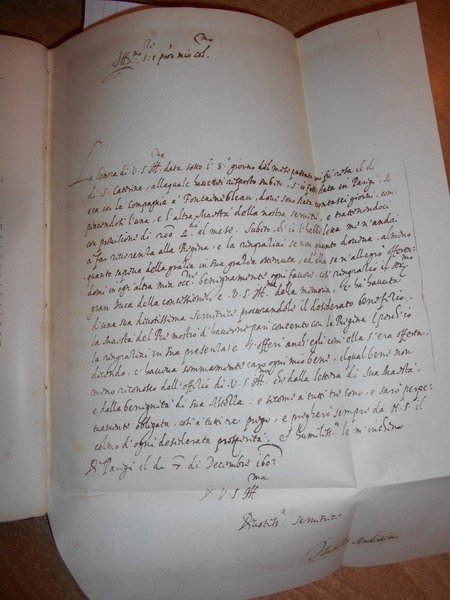 Ill.mo S.r e pron mio Col.mo
La lettera di V. S. Ill.ma data sotto l' 8° giorno del mese passato mi fù resa il dì
di S. Caterina, alla quale haverei risposto subito, s'io fossi stata in Parigi. Io
era con la Compagnia à Fontainebleau, dove sono stata contasei giorni, com-
piacendosi l'una, e l'altra Maestà della nostra servitù, e trattenendoci
con provisioni di 200 Δ.di el mese. Subito, ch'io l' hebbi letta me n'andai
à far riverenza alla Regina, e la ringraziai se non quanto doveva, almeno
quanto sapeva della gratia in sua gratia ottenuta, ed ella se n'allegrò offeren-
domi in ogni altra mia occ.ne benignamente ogni favore. così ringratio il Ser.mo
gran Duca della concessione, e V. S. Ill.ma della memoria, c' ha havuta
d'una sua divotissima servitrice procurandole il desiderato benefitio.
la Maestà del Rè mostrò d'haverne pur contento con la Regina (perch'io
la ringratiai in sua presenza) e s'offerì anch'egli con ella s'era offerta
dicendo, c' haveva sommamente caro ogni mio bene, il qual bene non
meno riconosco dall'offitio di V. S. Ill.ma che dalla lettera di Sua Maestà,
e dalla benignità di sua Altezza: e sicome à tutti tre sono, e sarò perpe-
tuamente obligata, così à tutti tre prego, e pregherò sempre da N. S. il
colmo d'ogni desiderata prosperità. e humiliss.te le m'inchino
Di Parigi il dì 7 di Decembre 1603
Di V. S. Ill.ma
Divotiss.a servitrice
Isabella Andreini